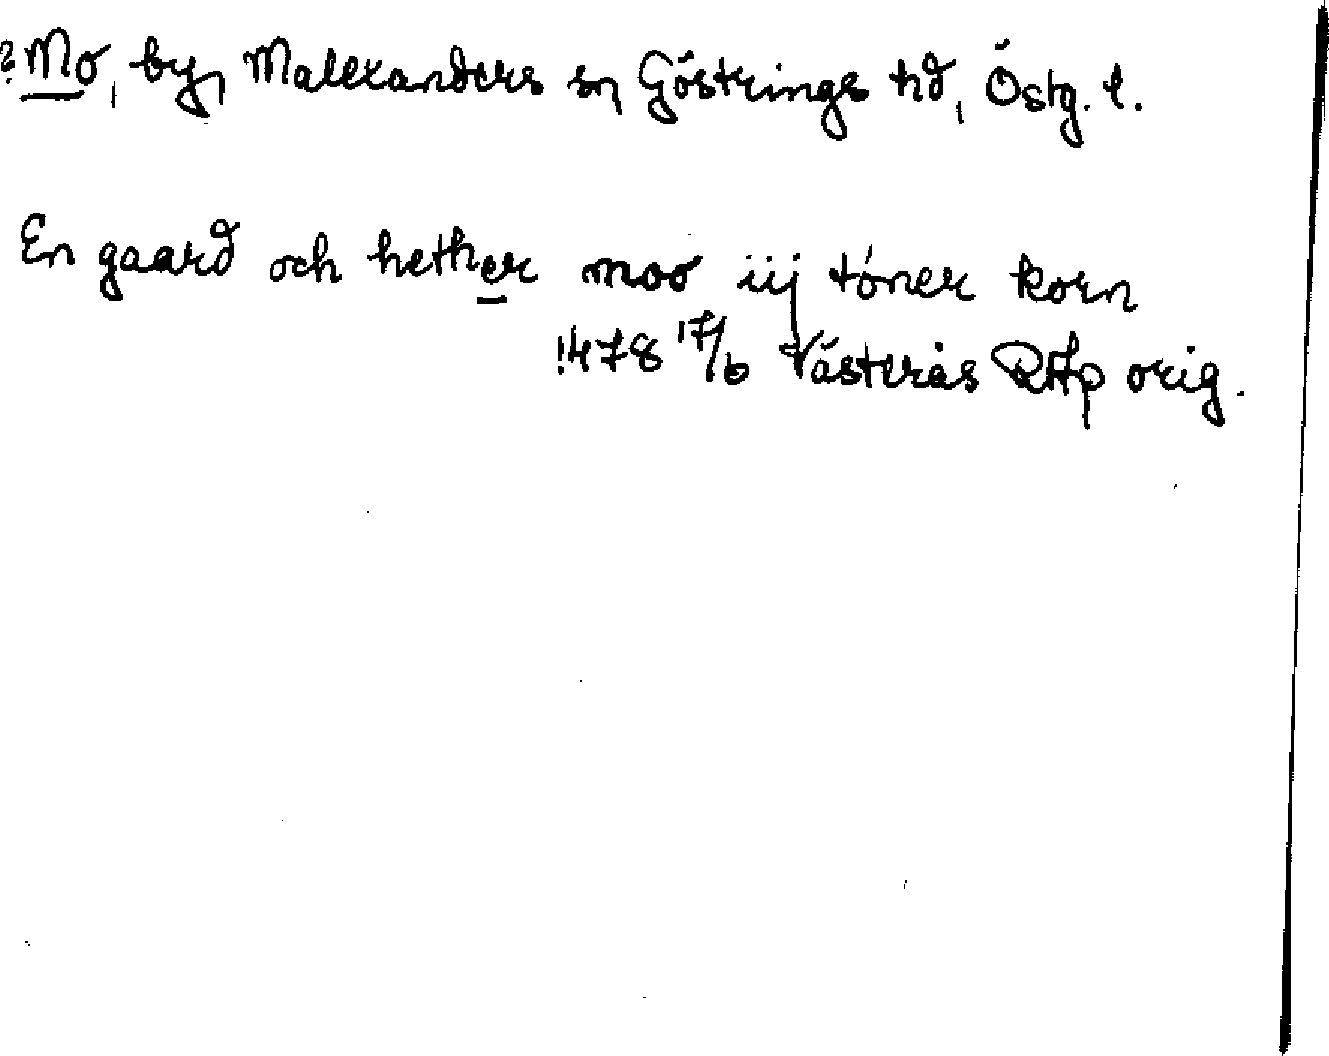 ?Mo, by, Malexanders sn, Göstrings hd, Östg. l.
En gaard och hether moo iij töner korn
1478 17/6 Västerås RAp orig.